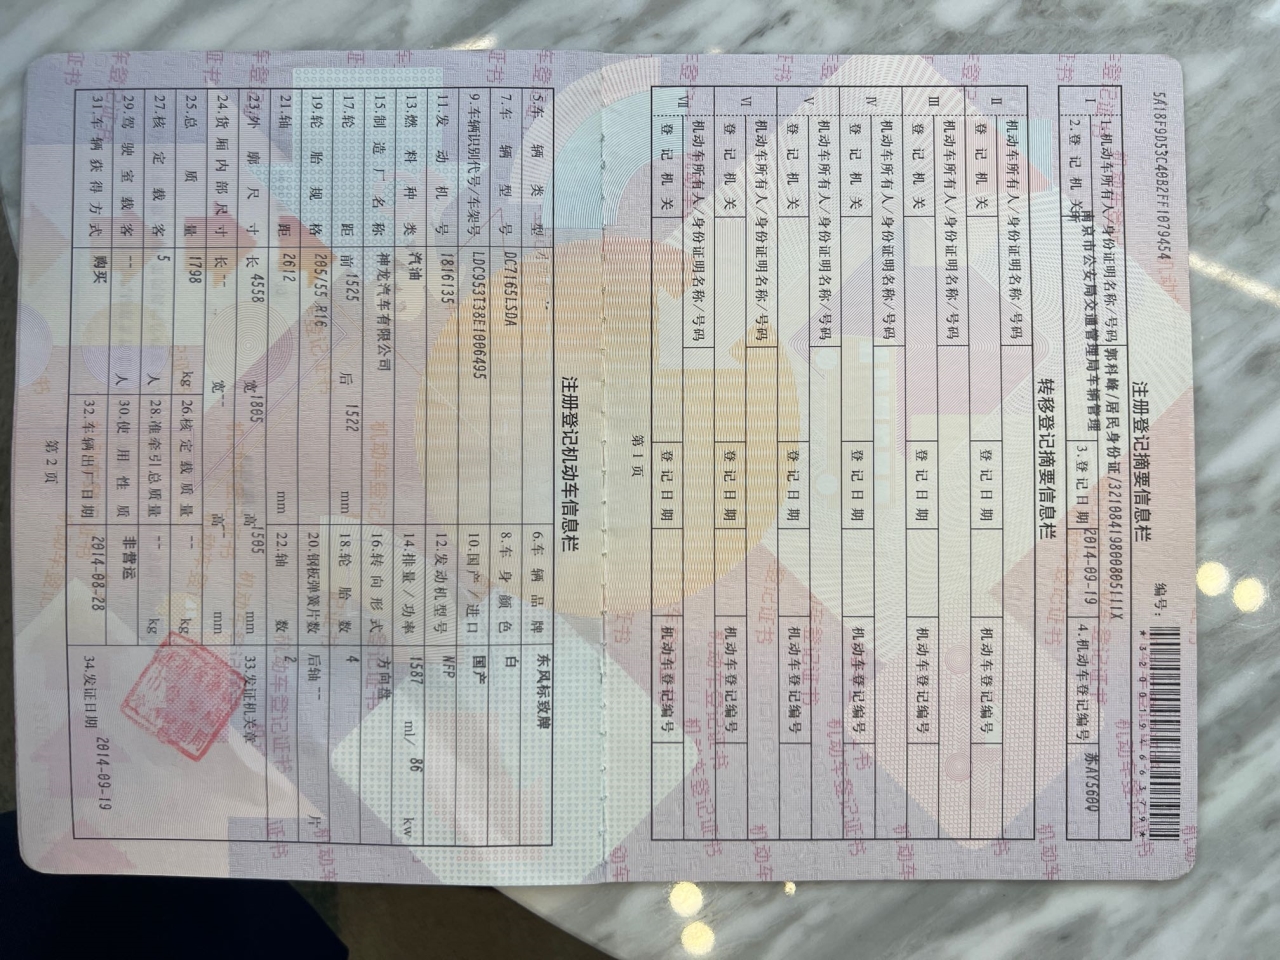 5A18F9D53C40B2FF1079454
注册登记摘要信息栏
编号:
*320019166379*
Ⅰ
1.机动车所有人/身份证明名称/号码 郭科峰/居民身份证/32108419800805111X
2.登记机关 南京市公安局交通管理局车辆管理所 3.登记日期 2014-09-19 4.机动车登记编号 苏AY560Q
转移登记摘要信息栏
Ⅱ
机动车所有人/身份证明名称/号码
登记机关 登记日期 机动车登记编号
Ⅲ
机动车所有人/身份证明名称/号码
登记机关 登记日期 机动车登记编号
Ⅳ
机动车所有人/身份证明名称/号码
登记机关 登记日期 机动车登记编号
Ⅴ
机动车所有人/身份证明名称/号码
登记机关 登记日期 机动车登记编号
Ⅵ
机动车所有人/身份证明名称/号码
登记机关 登记日期 机动车登记编号
Ⅶ
机动车所有人/身份证明名称/号码
登记机关 登记日期 机动车登记编号
第1页
注册登记机动车信息栏
5.车辆类型 6.车辆品牌 东风标致牌
7.车辆型号 DC7165LSDA 8.车身颜色 白
9.车辆识别代号/车架号 LDC953T38E1006495 10.国产/进口 国产
11.发动机号 1816135 12.发动机型号 NFP
13.燃料种类 汽油 14.排量/功率 1587 ml/ 86 kw
15.制造厂名称 神龙汽车有限公司 16.转向形式 方向盘
17.轮距 前 1525 后 1522 mm 18.轮胎数 4
19.轮胎规格 205/55 R16 20.钢板弹簧片数 后轴 -- 片
21.轴距 2612 mm 22.轴数 2
23.外廓尺寸 长 4558 宽 1805 高 1505 mm 33.发证机关章
24.货厢内部尺寸 长 -- 宽 -- 高 -- mm
25.总质量 1798 kg 26.核定载质量 -- kg
27.核定载客 5 人 28.准牵引总质量 -- kg
29.驾驶室载客 -- 人 30.使用性质 非营运
31.车辆获得方式 购买 32.车辆出厂日期 2014-08-28 34.发证日期 2014-09-19
第2页